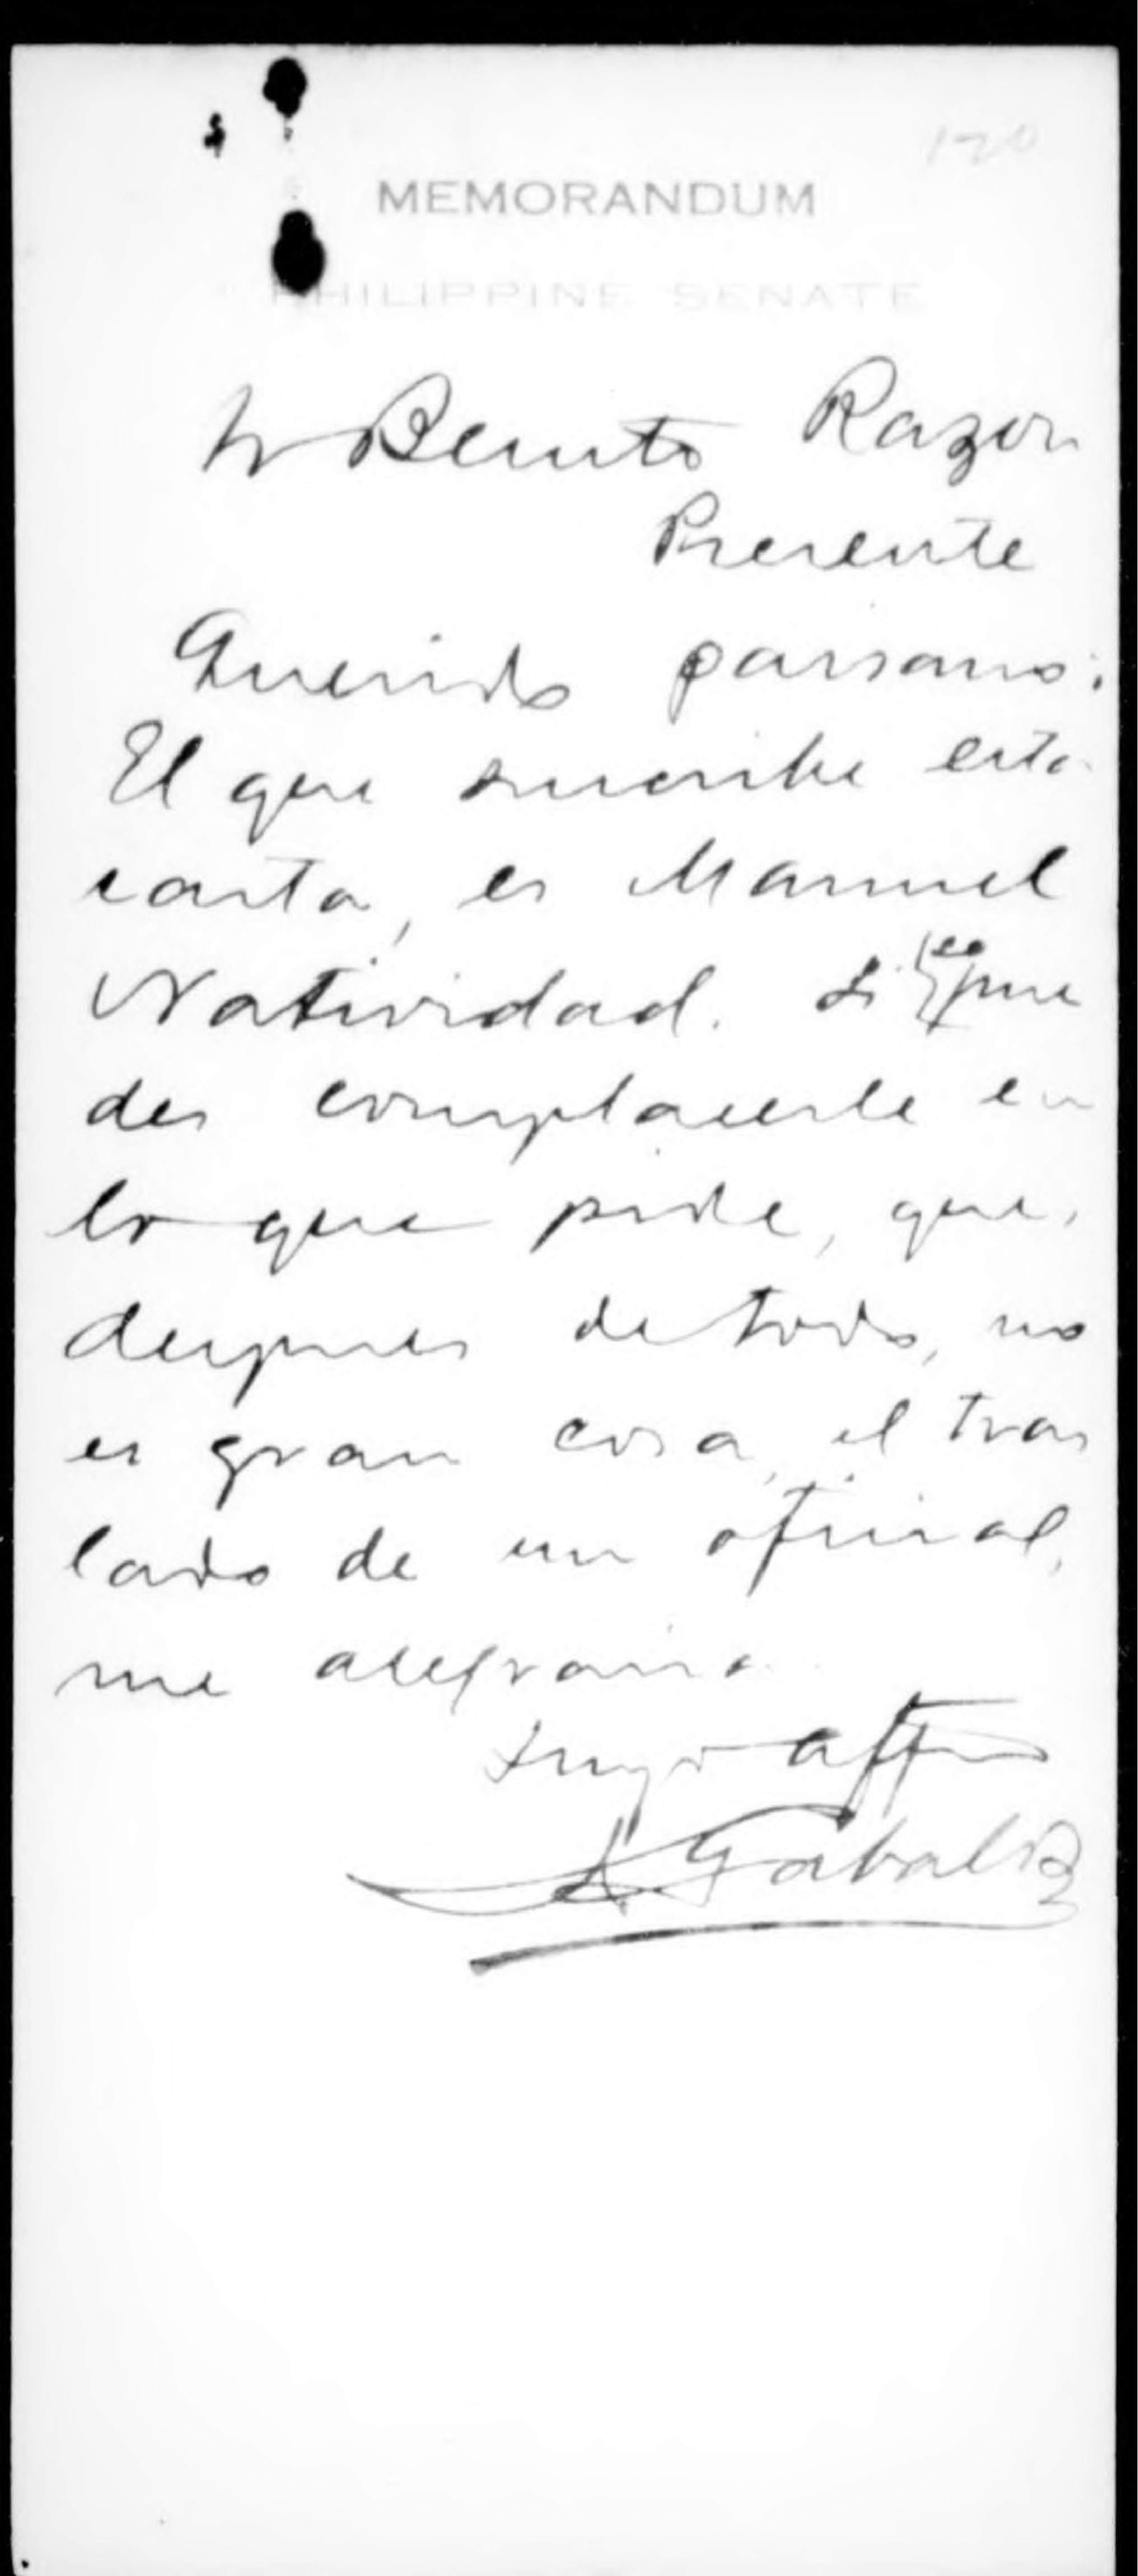 120
MEMORANDUM
PHILIPPINE SENATE
Sr Benito Razon
Presente
Querido paisano:
El que suscribe esta
carta, es Manuel
Natividad. Si pue
des complacerle en
lo que pide, que,
despues de todo, no
es gran cosa, el tras
lado de un oficial,
me alegraria.
Suyo affmo